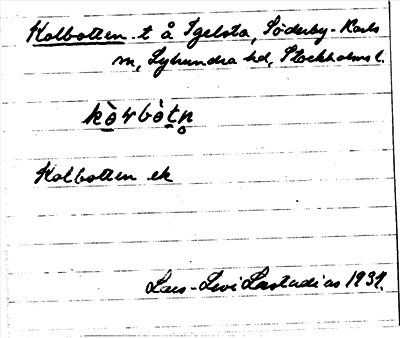 Kolbotten t å Igelsta, Söderby-Karls
sn, Lyhundra hd, Stockholms l.
kò̱rbò̱tn̥
Kolbotten ek
Lars-Levi Læstadius 1937.